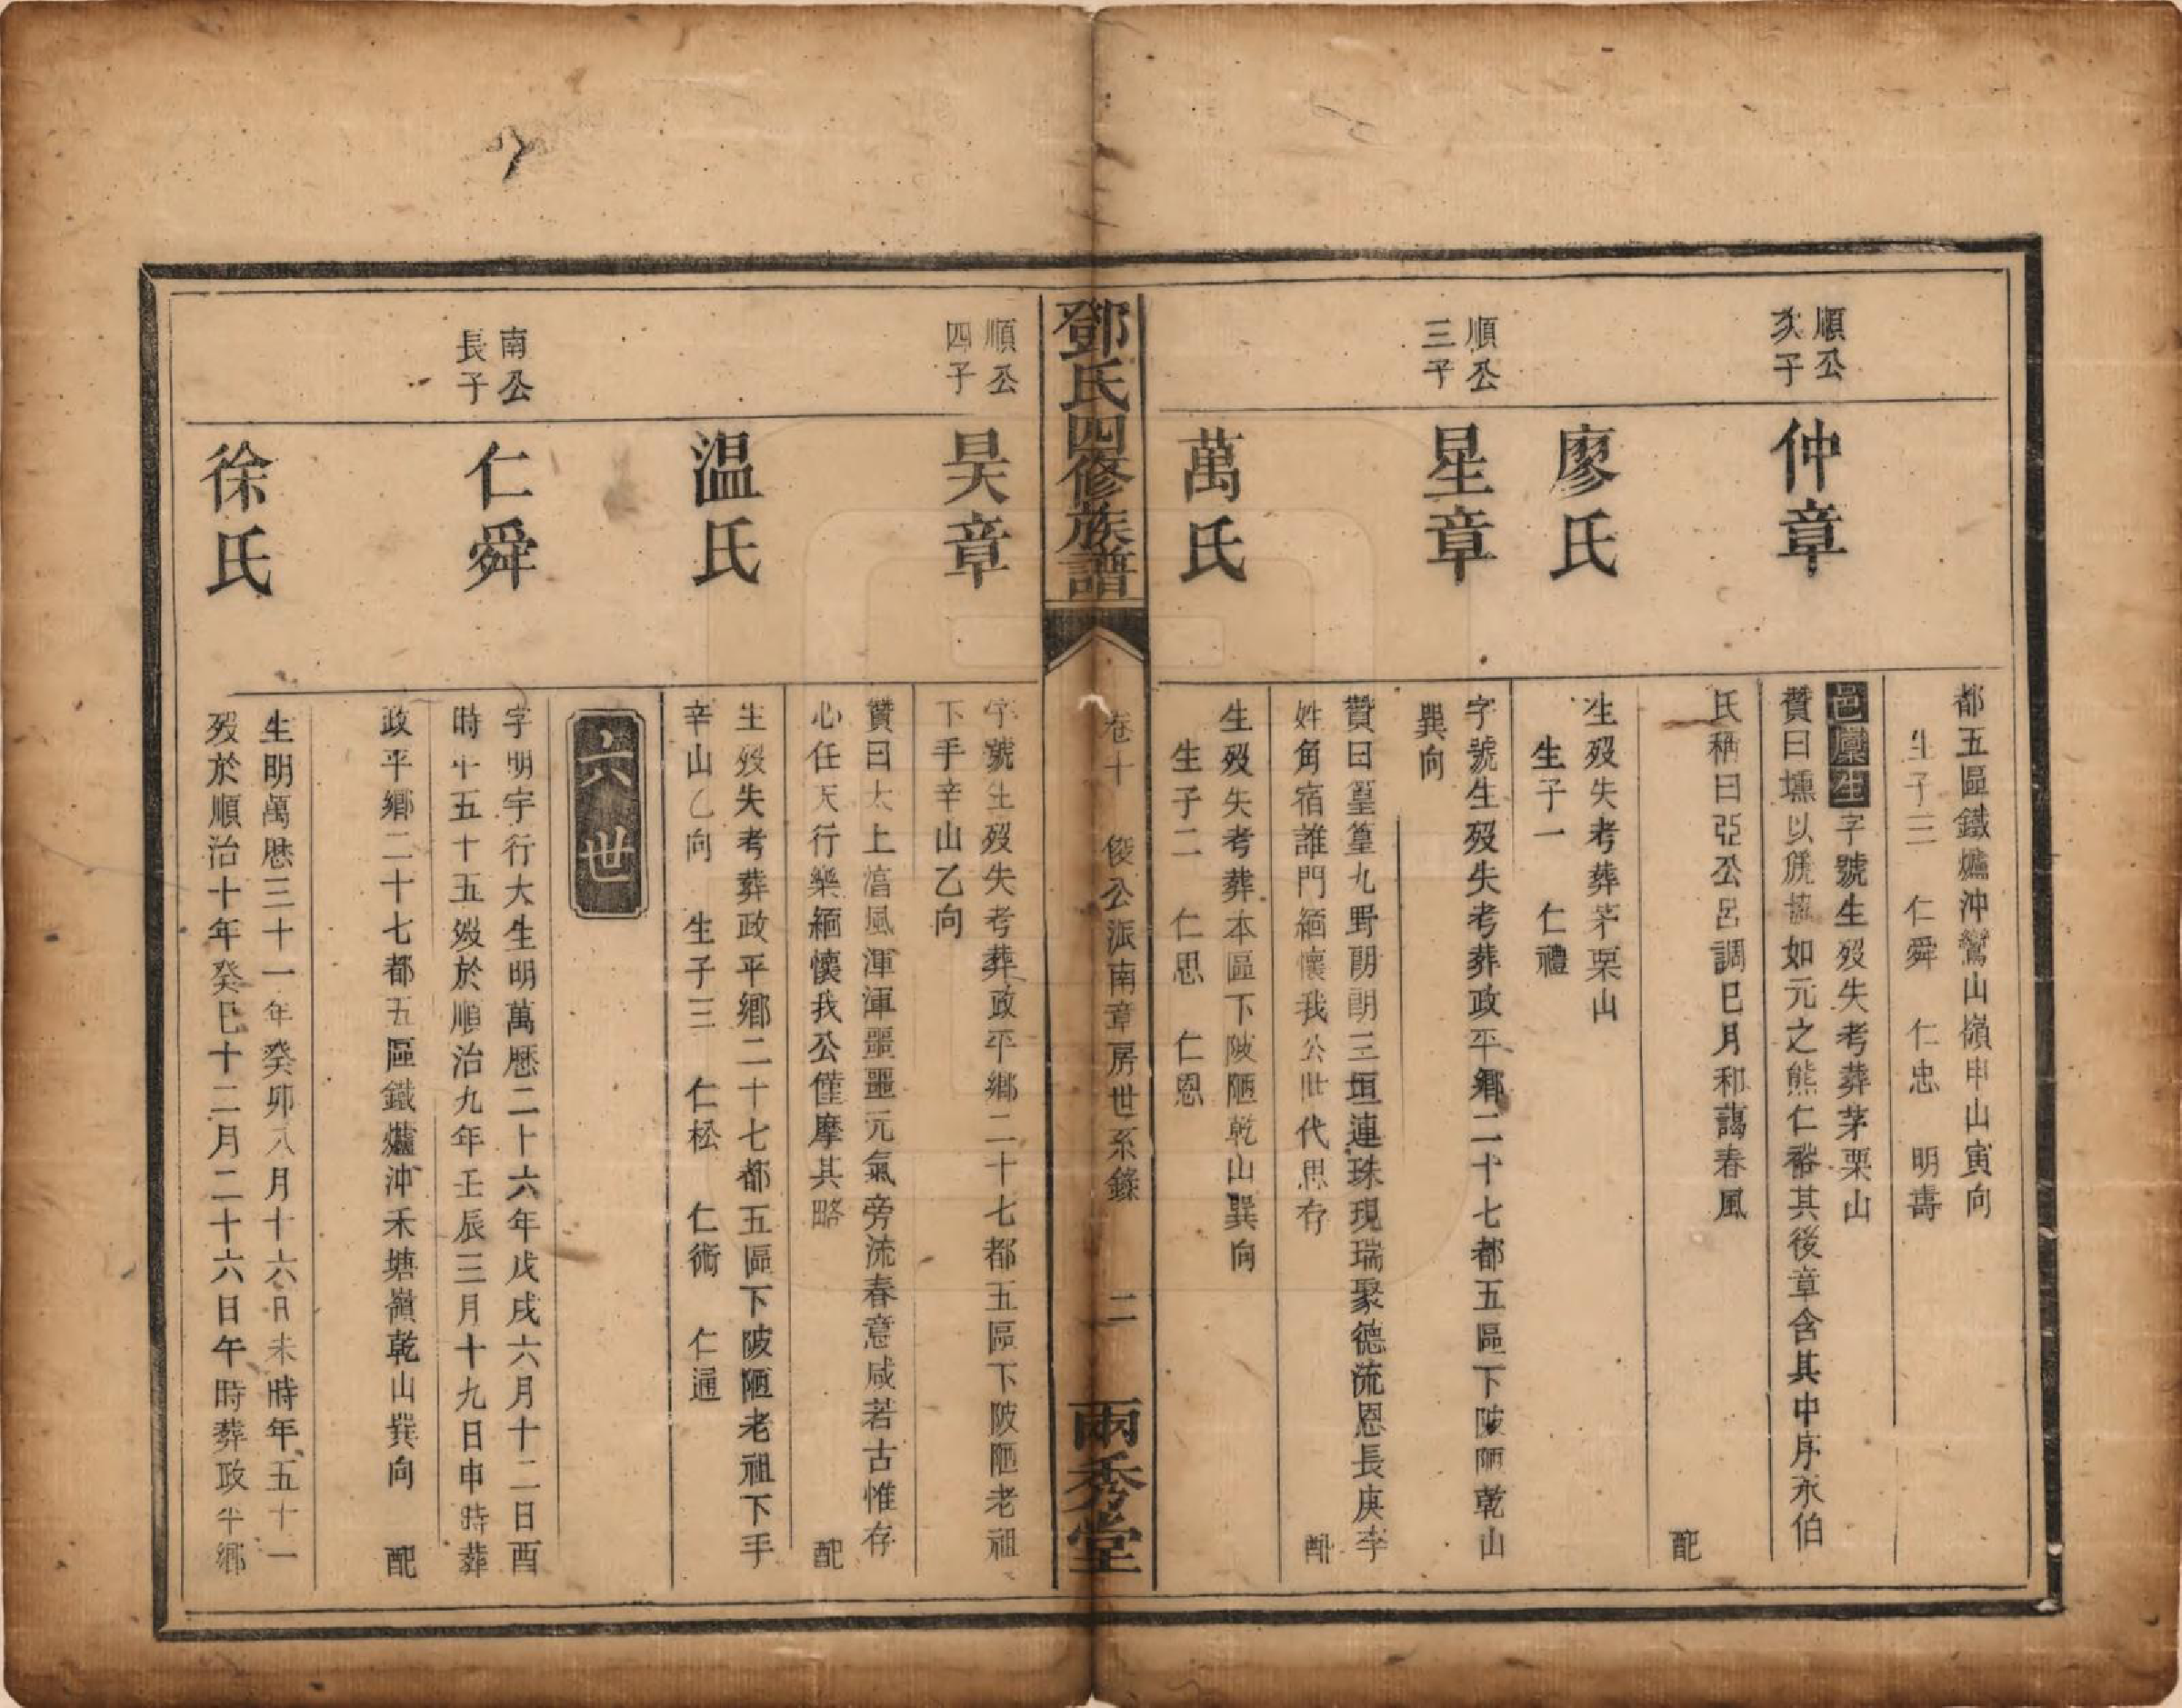 都五區鐵爐沖鸞山嶺申山寅向
生子三　仁舜　仁忠　明壽
順公
次子
仲章
邑廩生字號生歿失考葬茅栗山
贊曰壎以篪協如元之熊仁裕其後章含其中序永伯
氏稱曰亞公呂調巳月和藹春風
配
廖氏
生歿失考葬茅栗山
生子一　仁禮
順公
三子
星章
字號生歿失考葬政平鄉二十七都五區下陂陋乾山
巽向
贊曰篁篁九野朗朗三垣連珠現瑞聚德流恩長庚李
姓角宿誰門緬懷我公世代思存
配
萬氏
生歿失考葬本區下陂陋乾山巽向
生子二　仁思　仁恩
鄧氏四修族譜
卷十　俊公派南章房世系錄　二
兩秀堂
順公
四子
昊章
字號生歿失考葬政平鄉二十七都五區下陂陋老祖
下手辛山乙向
贊曰太上滀風渾渾噩噩元氣旁流春意咸若古惟存
心任天行樂緬懷我公僅摩其略
配
温氏
生歿失考葬政平鄉二十七都五區下陂陋老祖下手
辛山乙向　生子三　仁松　仁術　仁通
六世
南公
長子
仁舜
字明宇行大生明萬歷二十六年戊戌六月十二日酉
時年五十五歿於順治九年壬辰三月十九日申時葬
政平鄉二十七都五區鐵爐沖禾塘嶺乾山巽向
配
徐氏
生明萬歷三十一年癸卯八月十六日未時年五十一
歿於順治十年癸巳十二月二十六日午時葬政平鄉